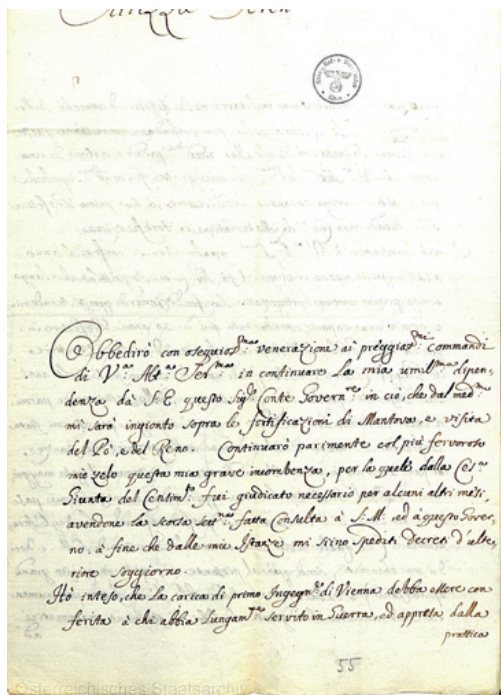 Altezza Seren
Obbedirò con ossequios.ma venerazione ai preggiat.mi commandi
di V.ra Alt.za Ser.ma in continuare la mia umil.ma dipen-
denza da S.E. questo Sig.r Conte Govern.re in ciò, che dal med.mo
mi sarà ingionto sopra le fortificazioni di Mantova, e visita
del Pò, e del Reno. Continuarò parimente col più fervoroso
mio zelo questa mia grave incombenza, per la quale dalla Ces.a
Giunta del Centim.o fui giudicato necessario per alcuni altri mesi,
avendone la scorsa sett.na fatta Consulta à S.M. ed à questo Gover-
no, à fine che dalle mie Istanze mi siino spediti decreti d'ulte-
riore soggiorno.
Hò inteso, che la carica di primo Ingegn.re di Vienna debba essere con-
ferita à chi abbia lungam.te servito in Guerra, ed appresa dalla
prattica
55
Österreichisches Staatsarchiv